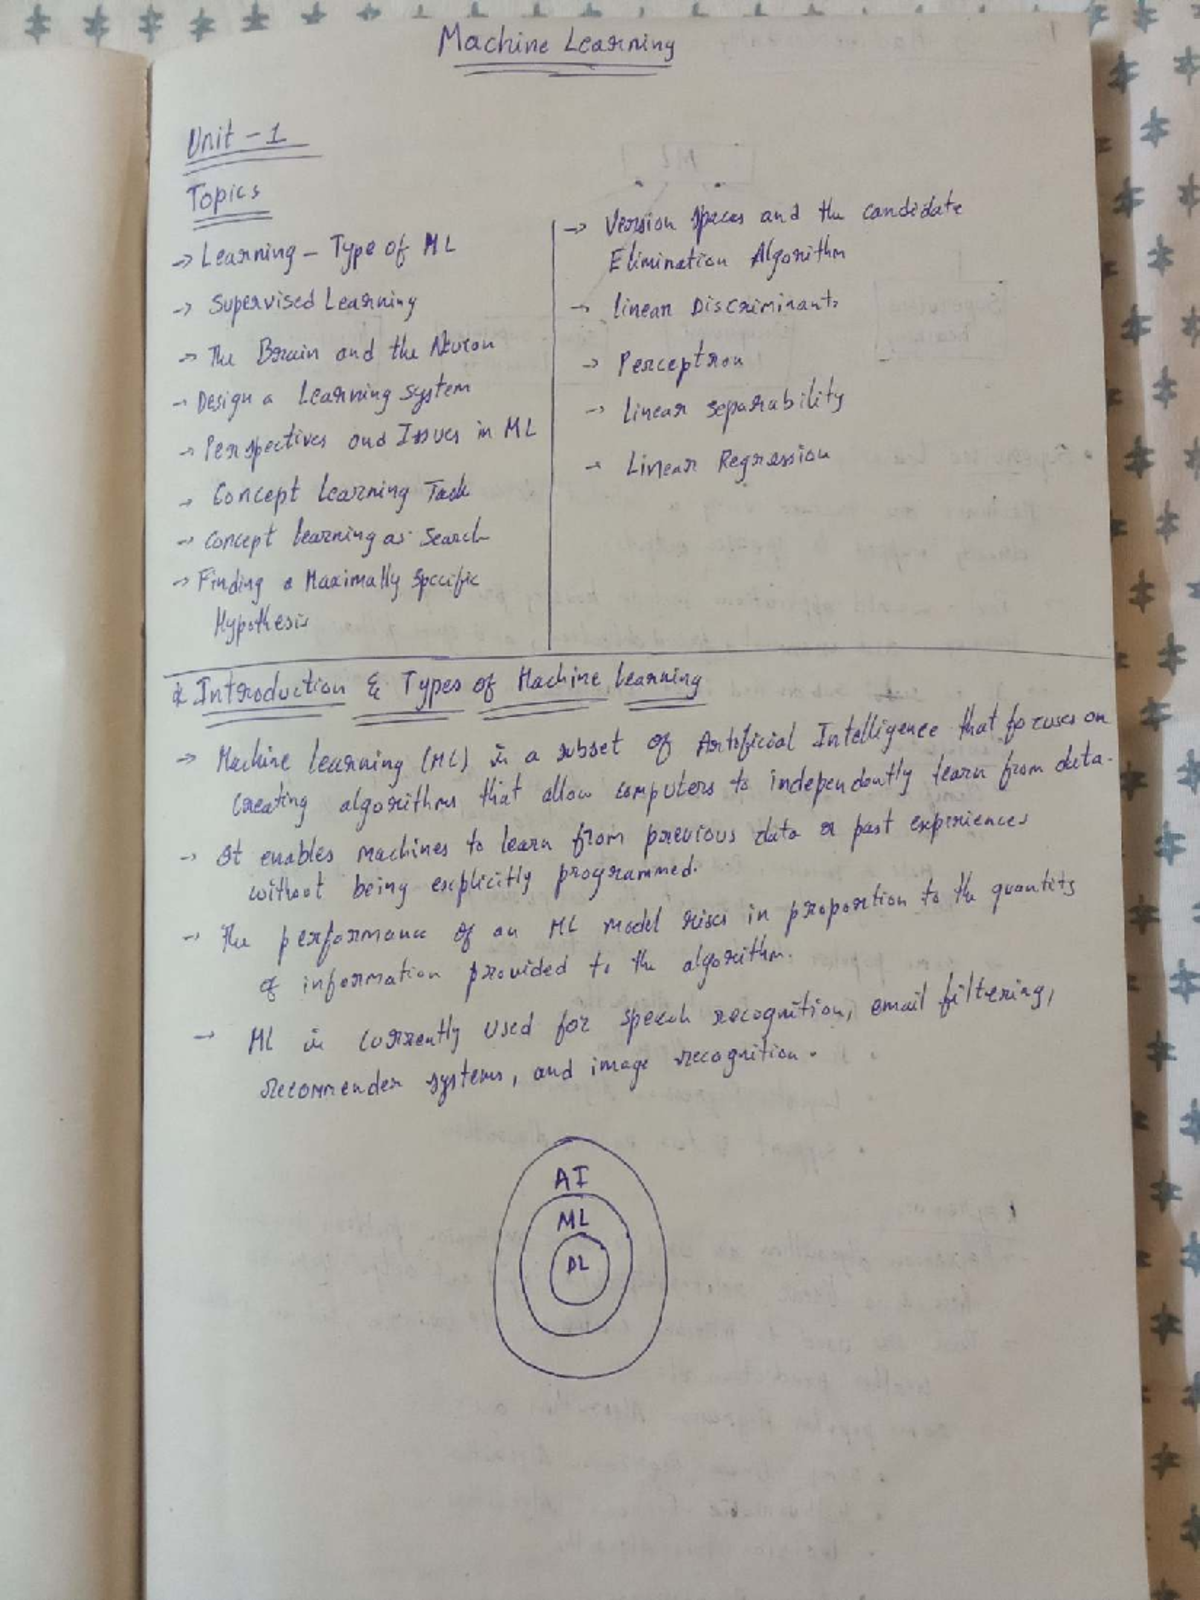 Machine Learning
Unit - 1
Topics
→ Learning - Type of ML
→ Supervised Learning
→ The Brain and the Neuron
→ Design a Learning System
→ Perspectives and Issues in ML
→ Concept Learning Task
→ Concept Learning as Search
→ Finding a Maximally Specific
Hypothesis
→ Version Spaces and the Candidate
Elimination Algorithm
→ Linear Discriminants
→ Perceptron
→ Linear Separability
→ Linear Regression
Introduction & Types of Machine Learning
→ Machine Learning (ML) is a subset of Artificial Intelligence that focuses on
creating algorithms that allow computers to independently learn from data.
→ It enables machines to learn from previous data or past experiences
without being explicitly programmed.
→ The performance of an ML model rises in proportion to the quantity
of information provided to the algorithm.
→ ML is currently used for speech recognition, email filtering,
recommender systems, and image recognition.
AI
ML
DL